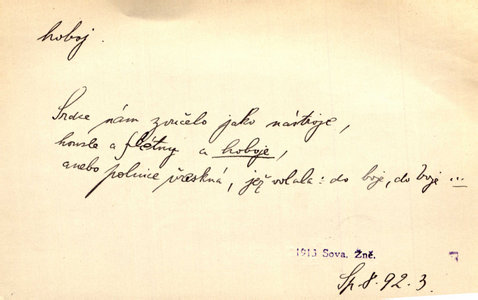 hoboj.
Srdce nám zvučelo jako nástroje,
housle a flétny a hoboje,
anebo polnice vřeskná, jež volala: do boje, do boje ...
1913 Sova. Žně.
Sp. 8. 92. 3.